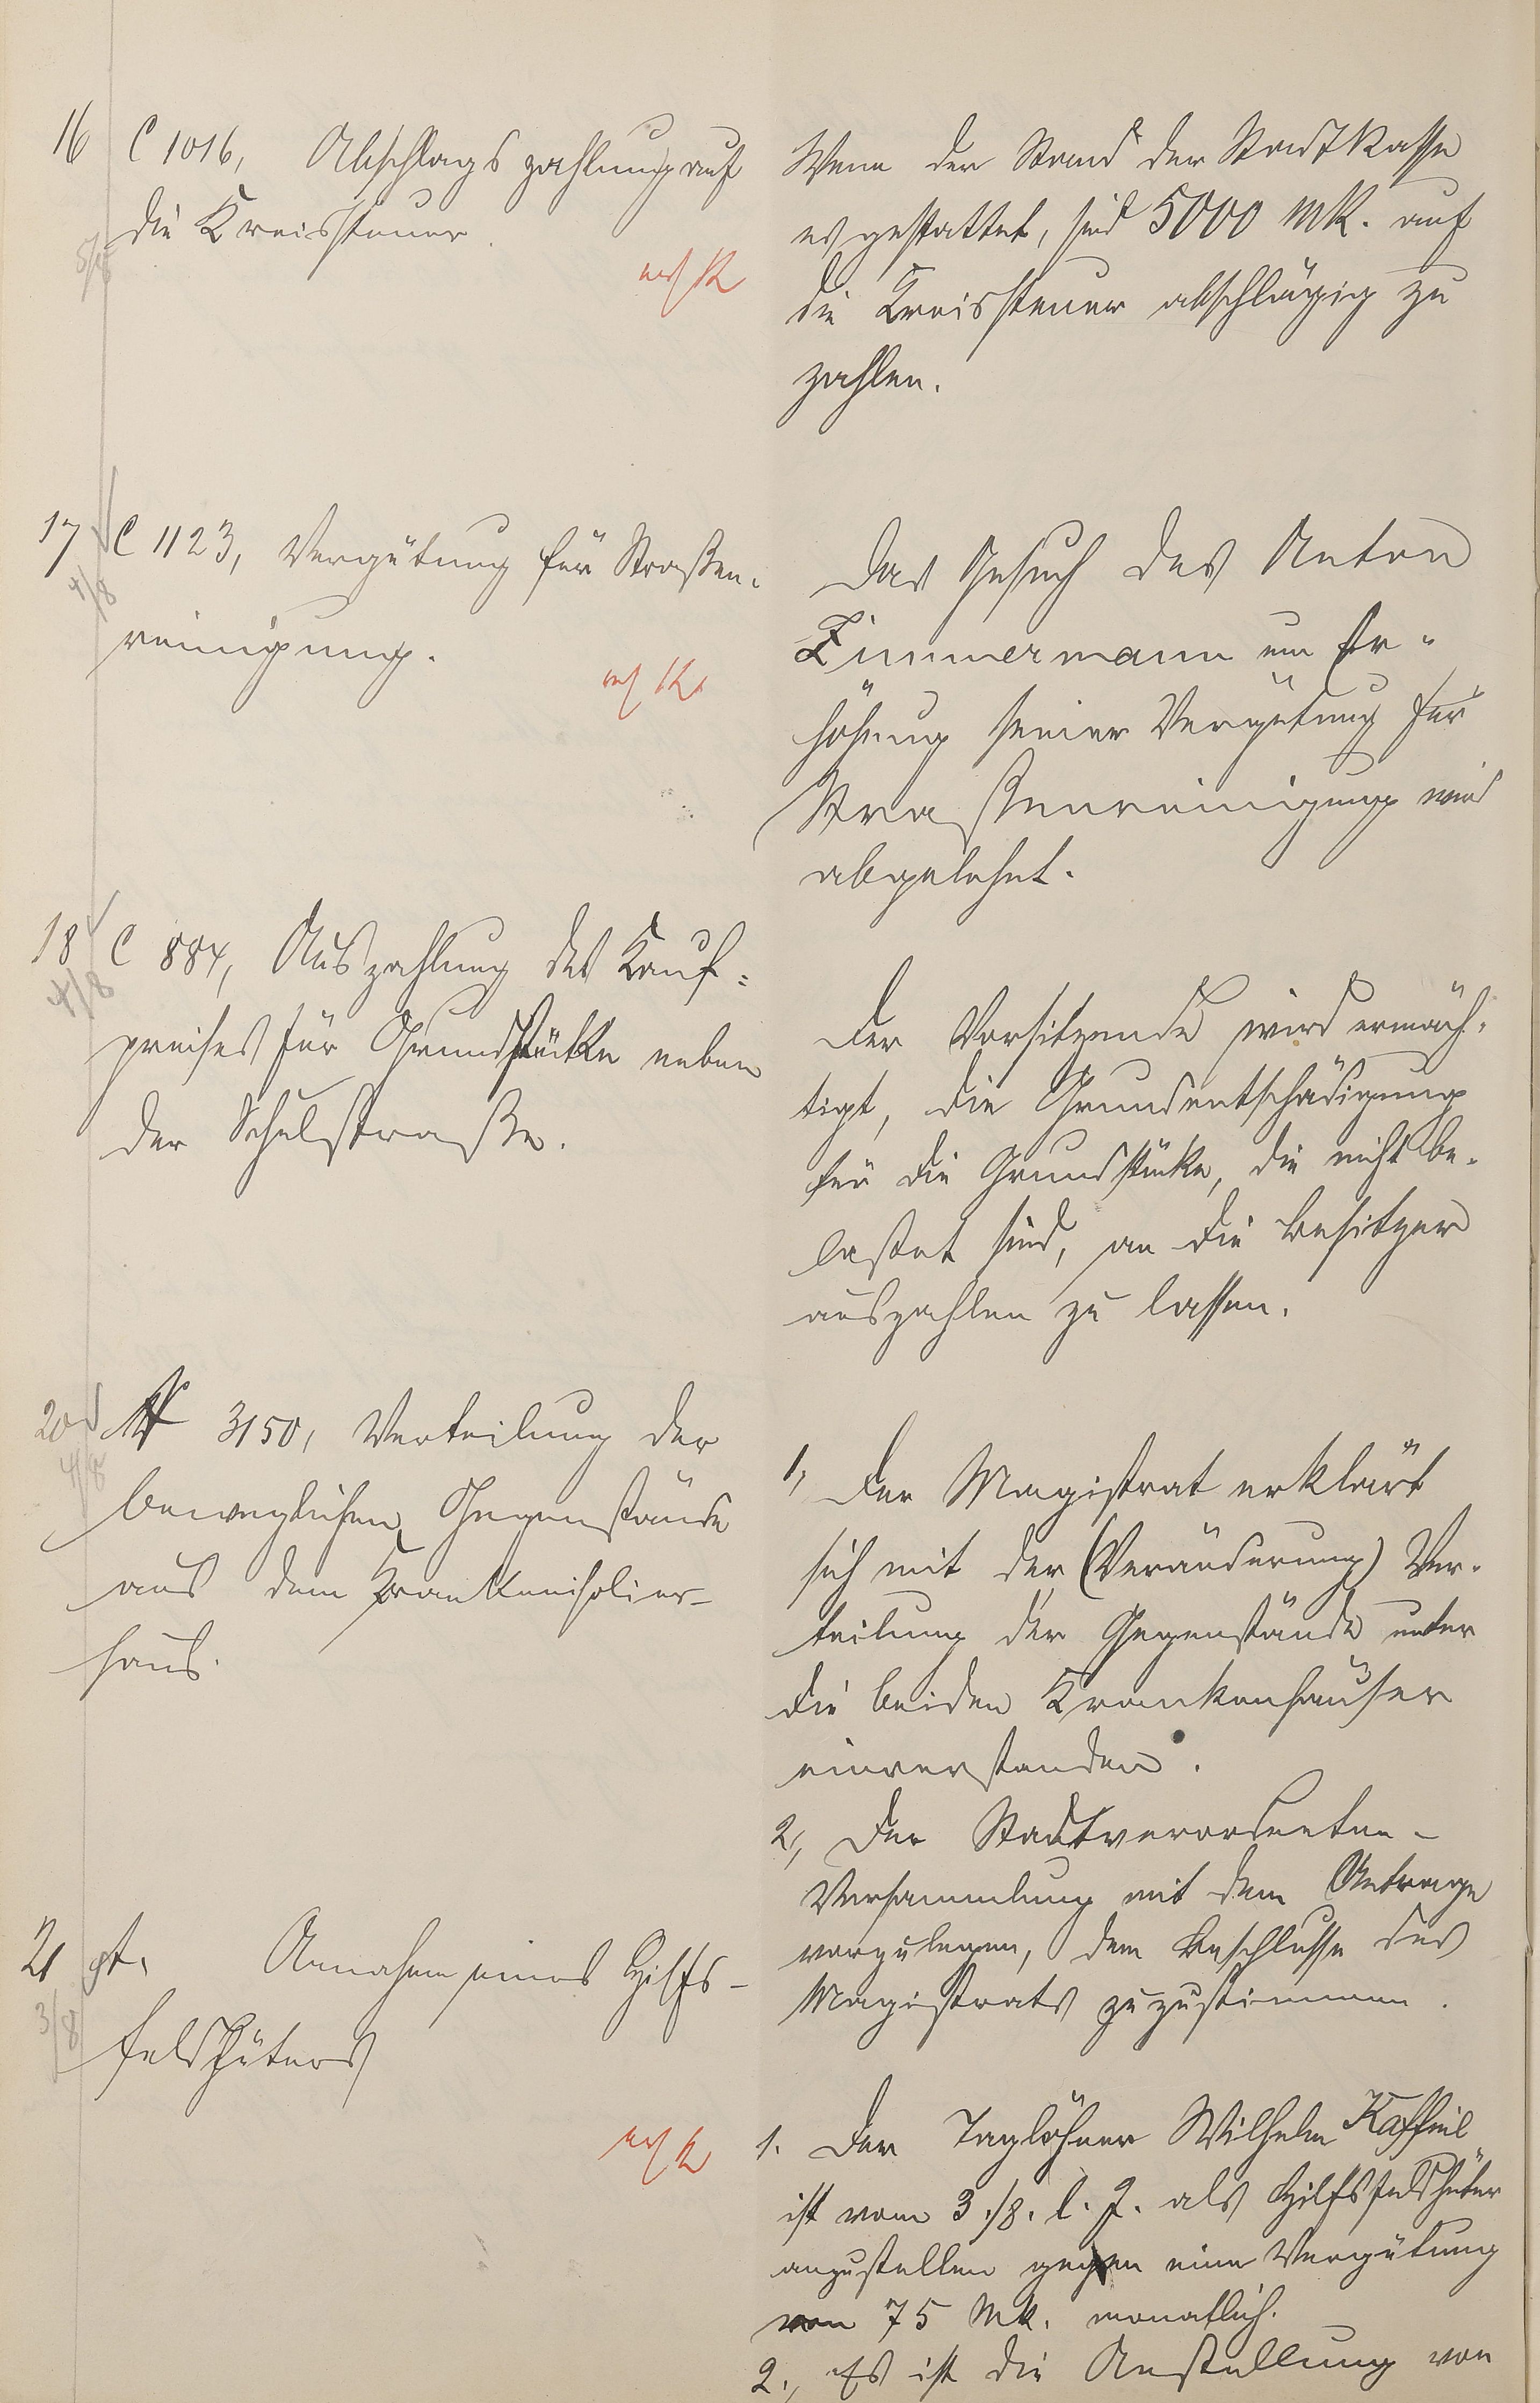 16 C 1016, Abschlagszahlung auf
die Kreissteuer.
5/8
Wenn der Stand der Stadtkasse
es gestattet, sind 5000 Mk. auf
die Kreissteuer abschlägig zu
zahlen.
17 C 1123, Vergütung für Straßen-
4/8
reinigung.
Das Gesuch des Anton
Zimmermann um Er-
höhung seiner Vergütung für
Straßenreinigung wird
abgelehnt.
18 C 884, Auszahlung des Kauf-
4/8
preises für Grundstücke neben
der Schulstraße.
Der Vorsitzende wird ermäch-
tigt, die Grundentschädigung
für die Grundstücke, die nicht be-
lastet sind, an die Besitzer
auszahlen zu lassen.
20 3150, Verteilung der
4/8
beweglichen Gegenstände
aus dem Krankenisolier-
haus.
1, Der Magistrat erklärt
sich mit der (Veränderung) Ver-
teilung der Gegenstände unter
die beiden Krankenhäuser
einverstanden.
2, Der Stadtverordneten-
Versammlung mit dem Antrage
vorzulegen, dem Beschlusse des
Magistrats zuzustimmen.
21 Annahme eines Hilfs-
3/8
feldhüters
1. Der Taglöhner Wilhelm
ist vom 3./8. l. J. als Hilfsfeldhüter
anzustellen gegen eine Vergütung
von 75 Mk. monatlich.
2., Es ist die Anstellung von